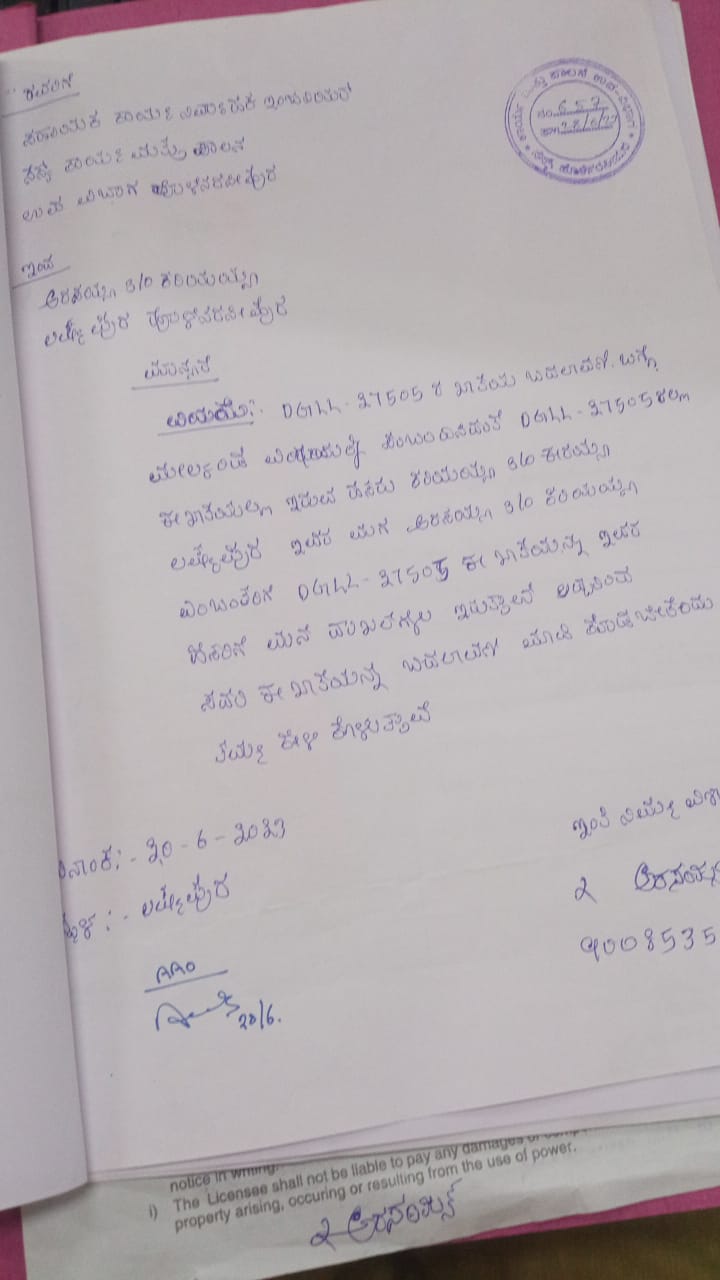 ರವರಿಗೆ
ಸಹಾಯಕ ಕಾರ್ಯ ನಿರ್ವಾಹಕ ಇಂಜಿನಿಯರ್
ಸೆಸ್ಕ ಕಾರ್ಯ ಮತ್ತು ಪಾಲನ
ಉಪ ವಿಭಾಗ ಹೊಳೆನರಸೀಪುರ
ನಂ: 657
ದಿ: 28/6/23
ಇಂದ
ಅರಸಯ್ಯ S/O ಕರಿಯಯ್ಯ
ಲಕ್ಷ್ಮೀಪುರ ಹೊಳೆನರಸೀಪುರ
ಮಾನ್ಯರೆ
ವಿಷಯ:- DGLL-27505 ರ ಖಾತೆಯ ಬದಲಾವಣೆ ಬಗ್ಗೆ
ಮೇಲ್ಕಂಡ ವಿಷಯಕ್ಕೆ ಸಂಬಂಧಿಸಿದಂತೆ DGLL-27505ರಲ್ಲಿ
ಈ ಖಾತೆಯಲ್ಲಿ ಇರುವ ಹೆಸರು ಕರಿಯಯ್ಯ S/O ಈರಯ್ಯ
ಲಕ್ಷ್ಮೀಪುರ ಇವರ ಮಗ ಅರಸಯ್ಯ S/O ಕರಿಯಯ್ಯ
ಎಂಬುವರಿಗೆ DGLL-27505 ಈ ಖಾತೆಯನ್ನು ಇವರ
ಹೆಸರಿಗೆ ಮನೆ ದಾಖಲೆಗಳು ಇರುತ್ತಾವೆ ಆದ್ದರಿಂದ
ಸದರಿ ಈ ಖಾತೆಯನ್ನ ಬದಲಾವಣೆ ಮಾಡಿ ಕೊಡಬೇಕೆಂದು
ತಮ್ಮ ಕೇಳಿ ಕೊಳುತ್ತಾವೆ
ದಿನಾಂಕ:- 20-6-2023
ಸ್ಥಳ:- ಲಕ್ಷ್ಮೀಪುರ
ಇಂತಿ ನಿಮ್ಮ
ಅರಸಯ್ಯ
9008535
AAO
20/6.
notice in writing.
i) The Licensee shall not be liable to pay any damages or
property arising, occuring or resulting from the use of power.